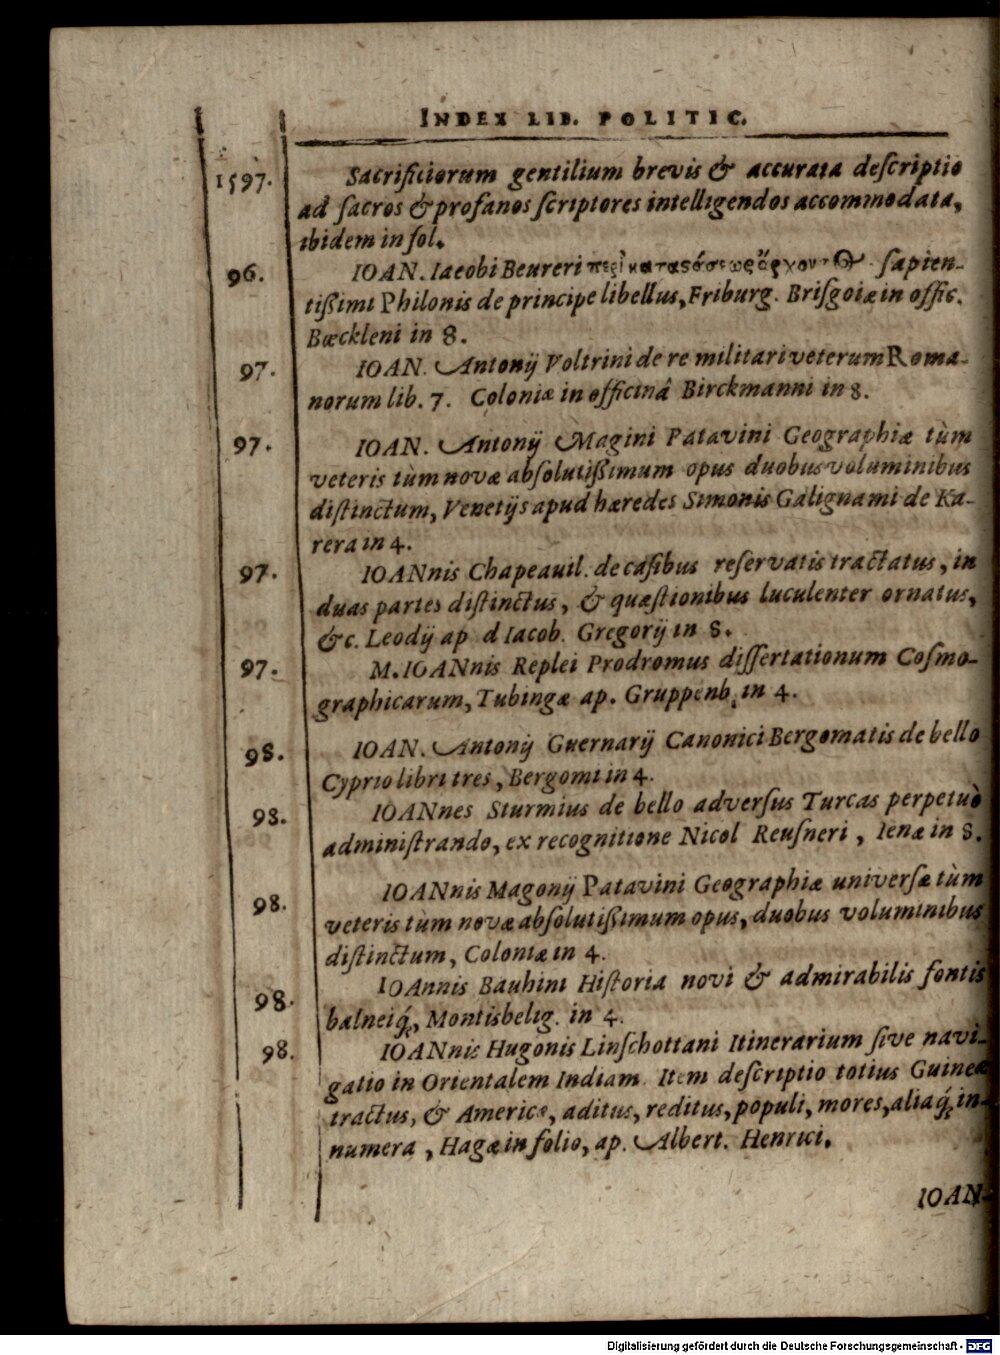 INDEX LIB. POLITIC.
1597. Sacrificiorum gentilium brevis & accurata deſcriptio
ad ſacros & profanos ſcriptores intelligendos accommodata,
ibidem in fol.
96. IOAN. Iacobi Beureri περὶ καταϛάσεως ἄρχοντ⊙ ſapien-
tißimi Philonis de principe libellus, Friburg. Briſgoiæ in offic.
Bœckleni in 8.
97. IOAN. Antonij Voltrini de re militari veterum Roma-
norum lib. 7. Coloniæ in officinâ Birckmanni in 8.
97. IOAN. Antonij Magini Patavini Geographiæ tùm
veteris tùm novæ abſolutißimum opus duobus voluminibus
diſtinctum, Venetijs apud hæredes Simonis Galignami de Ka-
rera in 4.
97. IOANnis Chapeauil. de caſibus reſervatis tractatus, in
duas partes diſtinctus, & quæſtionibus luculenter ornatus,
&c. Leodij ap d Iacob. Gregorij in 8.
97. M. IOANnis Replei Prodromus diſſertationum Coſmo-
graphicarum, Tubingæ ap. Gruppenb. in 4.
98. IOAN. Antonij Guernarij Canonici Bergomatis de bello
Cyprio libri tres, Bergomi in 4.
98. IOANnes Sturmius de bello adverſus Turcas perpetuò
adminiſtrando, ex recognitione Nicol Reuſneri, Ienæ in 8.
98. IOANnis Magonij Patavini Geographiæ univerſæ tùm
veteris tùm novæ abſolutißimum opus, duobus voluminibus
diſtinctum, Coloniæ in 4.
98. IOAnnis Bauhini Hiſtoria novi & admirabilis fontis
balneiq́;, Montisbelig. in 4.
98. IOANnis Hugonis Linſchottani Itinerarium ſive navi-
gatio in Orientalem Indiam. Item deſcriptio totius Guineæ
tractus, & Americæ, aditus, reditus, populi, mores, aliaq́; in-
numera, Hagæ in folio, ap. Albert. Henrici.
IOAN-
Digitalisierung gefördert durch die Deutsche Forschungsgemeinschaft - DFG